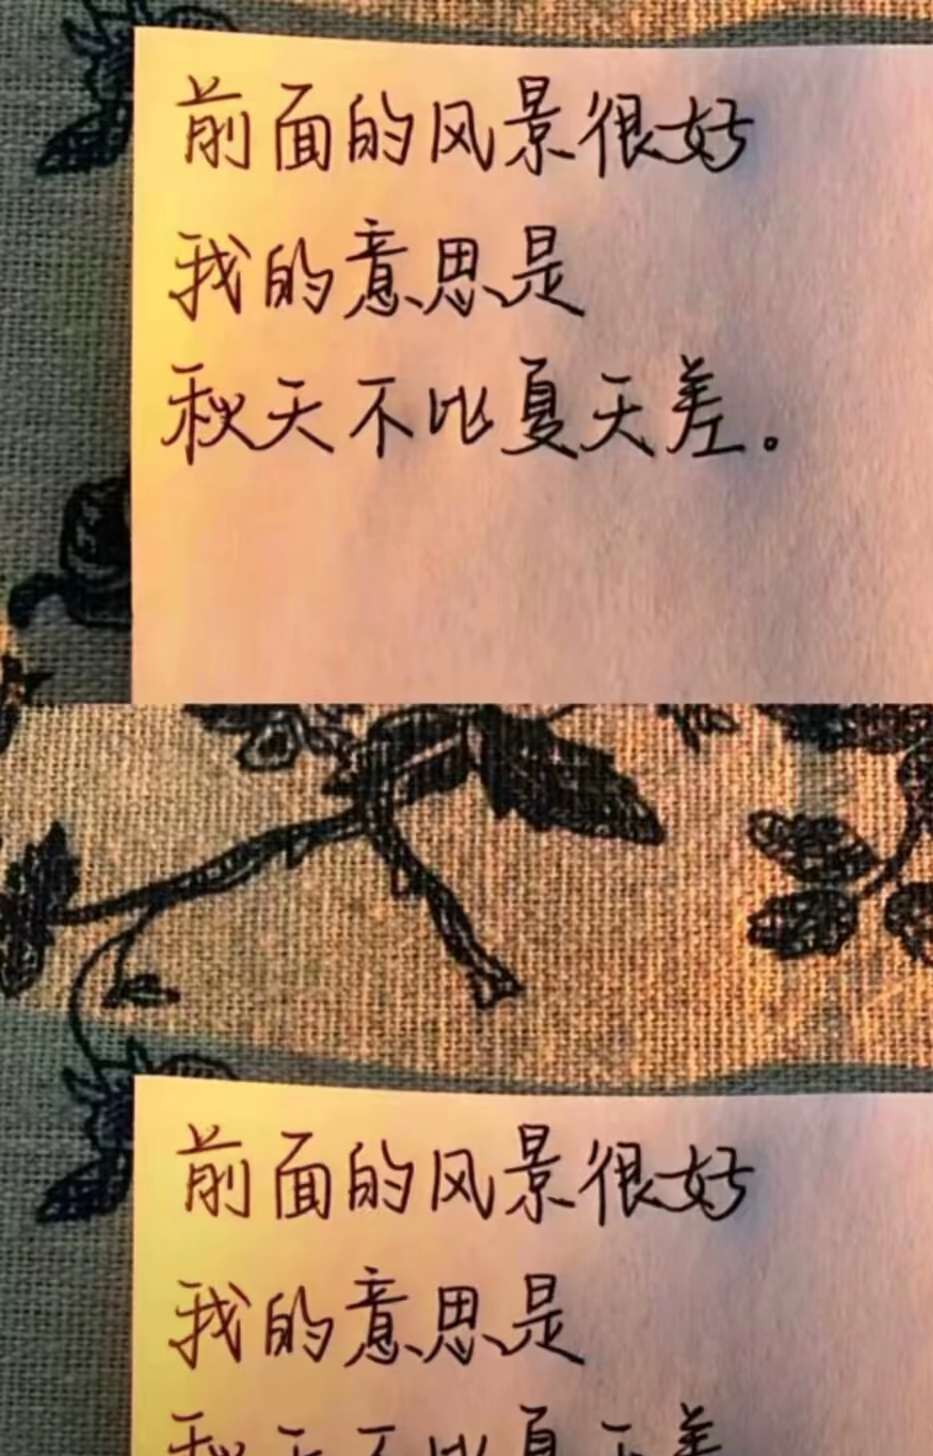 前面的风景很好
我的意思是
秋天不比夏天差。
前面的风景很好
我的意思是
秋天不比夏天差